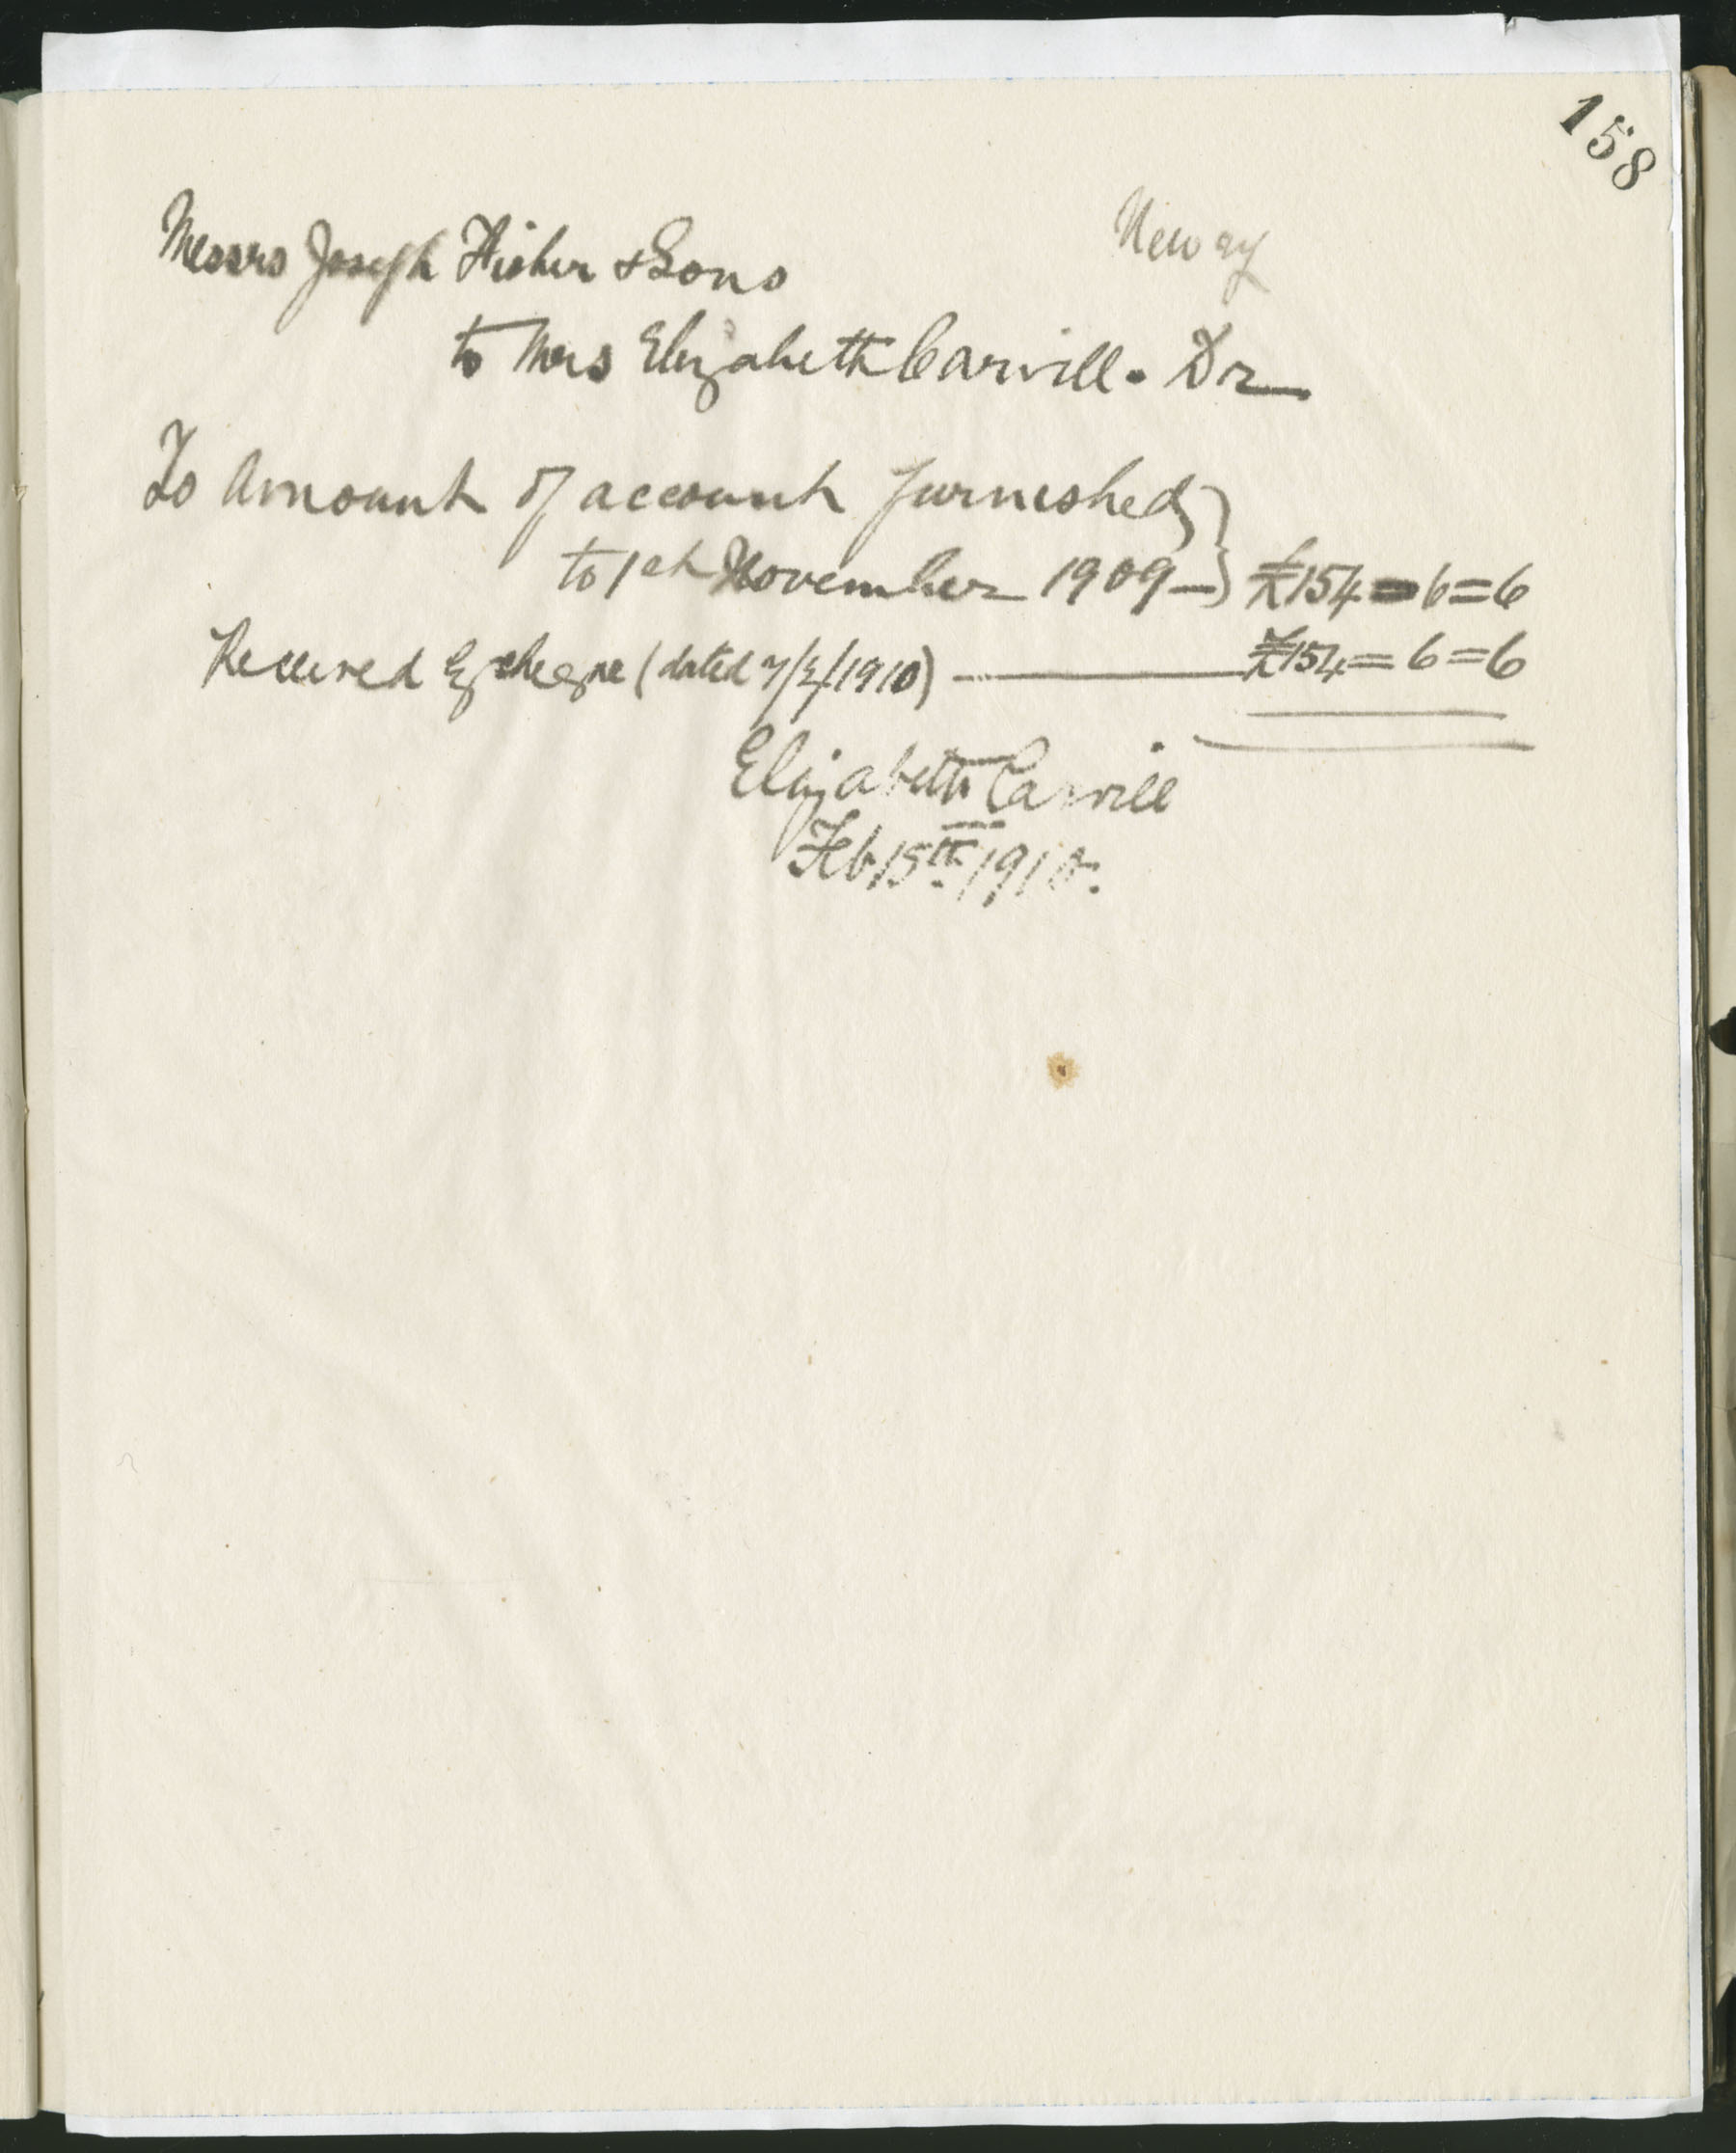 158
Messrs Joseph Fisher & Sons Newry
to Mrs Elizabeth Carvill. Dr
To Amount of account furnished
to 1st November 1909 — £154=6=6
Received By cheque (dated 7/2/1910) — £154=6=6
Elizabeth Carvill
Feb 15th 1910.